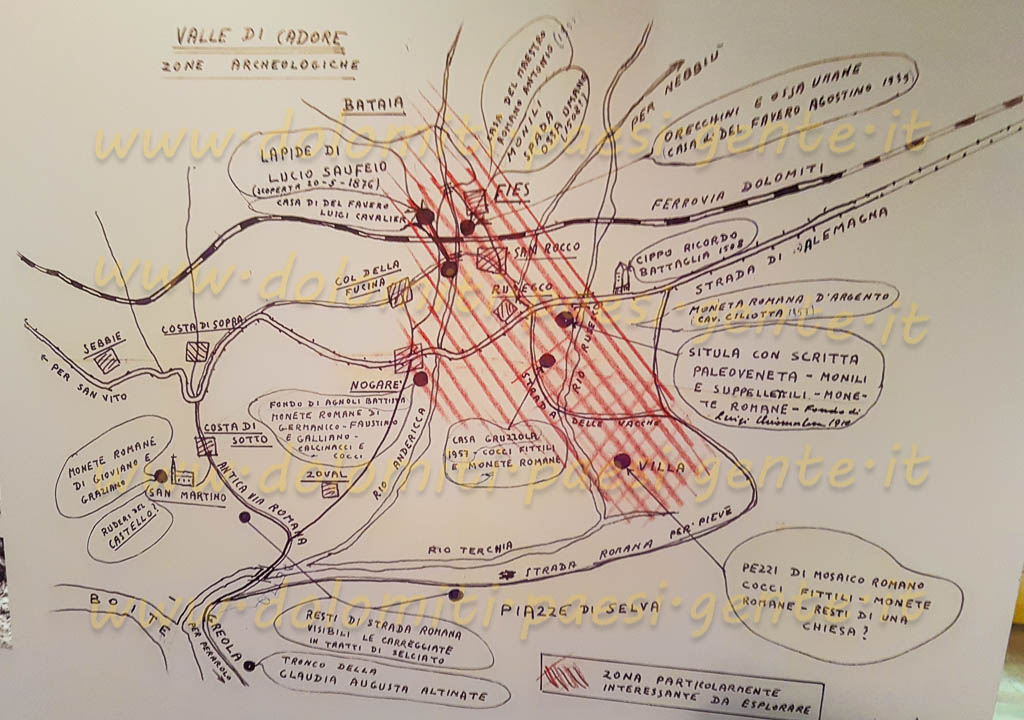 VALLE DI CADORE
ZONE ARCHEOLOGICHE
BATAIA
LAPIDE DI
LUCIO SAUFEIO
(SCOPERTA 20-5-1876)
CASA DI DEL FAVERO
LUIGI CAVALIER
CASA DEL MAESTRO
ROMANO ANTONIO
MONILI
SPADA
OSSA UMANE
(1508?)
PER NEBBIÙ
ORECCHINI E OSSA UMANE
CASA di DEL FAVERO AGOSTINO 1939
FIES
FERROVIA DOLOMITI
SAN ROCCO
CIPPO RICORDO
BATTAGLIA 1508
STRADA DI ALEMAGNA
COL DELLA
FUCINA
RUSECCO
RIO RUSECCO
MONETA ROMANA D'ARGENTO
(CAV. CILIOTTA 1951)
SITULA CON SCRITTA
PALEOVENETA - MONILI
E SUPPELLETTILI - MONE-
TE ROMANE - Fondo di
Luigi
COSTA DI SOPRA
SEBBIE
PER SAN VITO
NOGARE'
FONDO DI AGNOLI BATTISTA
MONETE ROMANE DI
GERMANICO - FAUSTINO
E GALLIANO -
CALCINACCI E
COCCI
STRADA DELLE VACCHE
CASA GRUZZOLA
1957, COCCI FITTILI
E MONETE ROMANE
COSTA DI
SOTTO
ZOVAL
RIO ANDERICCA
VILLA
MONETE ROMANE
DI GIOVIANO E
GRAZIANO
SAN MARTINO
RUDERI DEL
CASTELLO?
ANTICA VIA ROMANA
RIO TERCHIA
STRADA ROMANA PER PIEVE
PEZZI DI MOSAICO ROMANO
COCCI FITTILI - MONETE
ROMANE - RESTI DI UNA
CHIESA?
BOITE
GREOLA
PER PERAROLO
PIAZZE DI SELVA
RESTI DI STRADA ROMANA
VISIBILI LE CARREGGIATE
IN TRATTI DI SELCIATO
TRONCO DELLA
CLAUDIA AUGUSTA ALTINATE
ZONA PARTICOLARMENTE
INTERESSANTE DA ESPLORARE
www.dolomiti-paesi-gente.it
www.dolomiti-paesi-gente.it
www.dolomiti-paesi-gente.it
www.dolomiti-paesi-gente.it